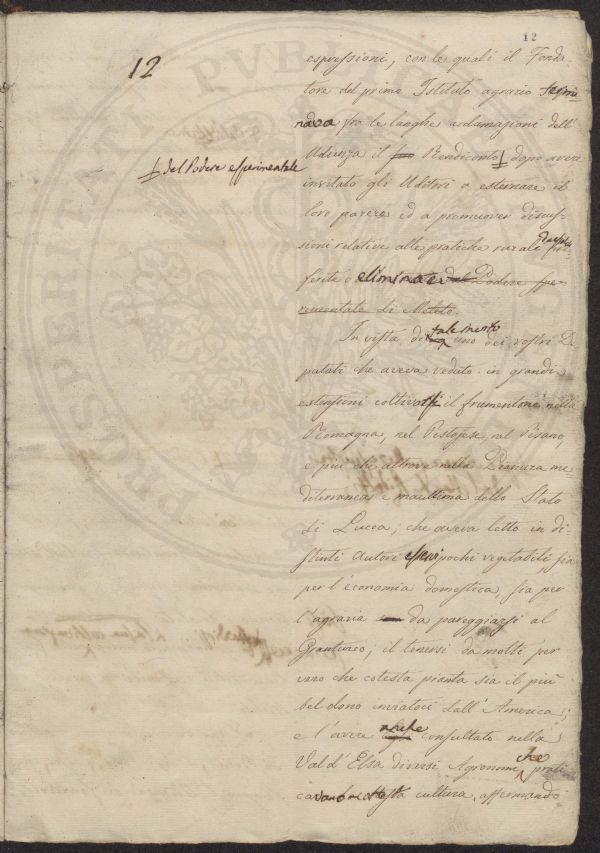 12
12
⊥ del Podere esperimentale
espressioni, con le quali il Fonda-
tore del primo Istituto agrario termi-
nava fra le lunghe acclamazioni dell'
Udienza il Rendiconto ⊥ dopo avere
invitato gli Uditori a esternare il
loro parere ed a promuover discus-
sioni relative alle pratiche rurali
ferite o eliminate dal Podere spe-
rimentale di Meleto.
In vista di tale merito uno dei vostri De-
putati che aveva veduto in grandi
estensioni coltivarsi il frumentone nella
Romagna, nel Pistojese, nel Pisano,
e più che altrove nella Pianura me-
diterranea e marittima dello Stato
di Lucca; che aveva letto in di-
stinti Autori esservi pochi vegetabili sia
per l'economia domestica, sia per
l'agraria da pareggiarsi al
Granturco; il tenersi da molti per
vero che cotesta pianta sia il più
bel dono inviatoci dall'America;
e l'avere anche consultato nella
Val d'Elsa diversi Agronomi che prati
cavano cotesta cultura, affermando